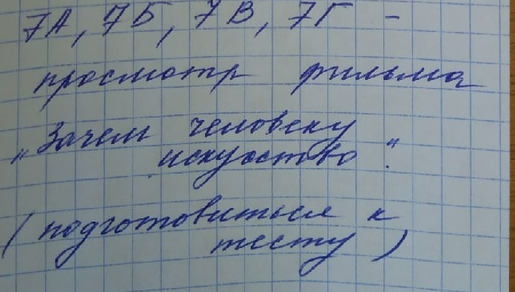 7А, 7Б, 7В, 7Г -
просмотр фильма
„Зачем человеку
искусство“
(подготовиться к
тесту)